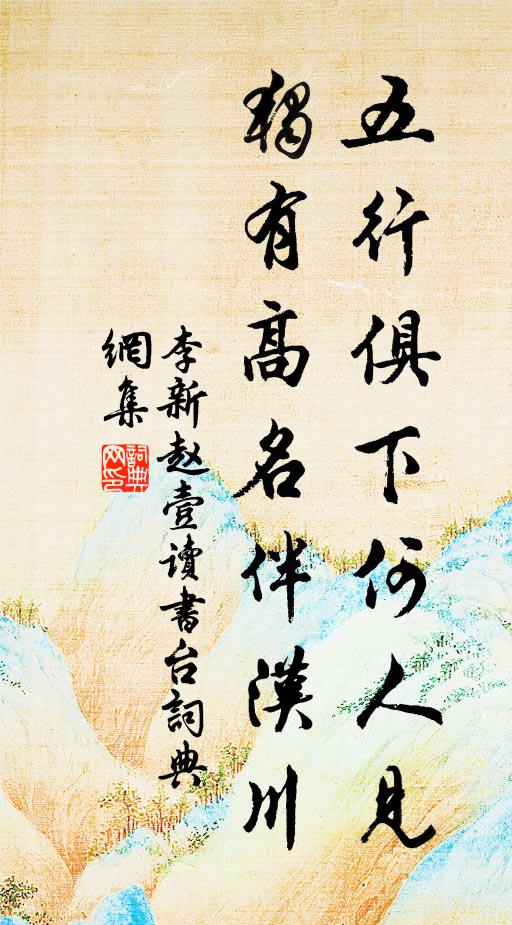 五行俱下何人見
獨有高名伴漢川
李新赵壹讀書台詞典
網集
詞典
网印